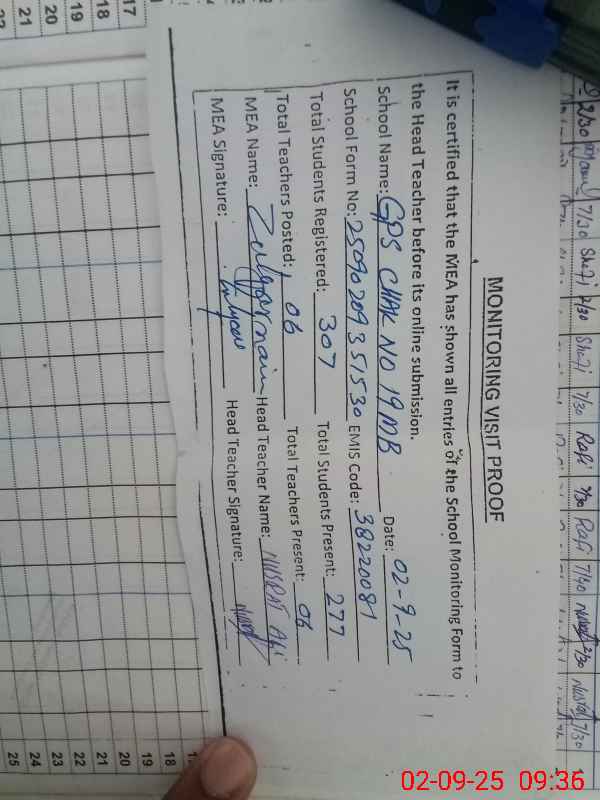 MONITORING VISIT PROOF
It is certified that the MEA has shown all entries of the School Monitoring Form to
the Head Teacher before its online submission.
School Name: GPS CHAK NO 19MB Date: 02-9-25
School Form No: 25090209351530 EMIS Code: 38220081
Total Students Registered: 307 Total Students Present: 277
Total Teachers Posted: 06 Total Teachers Present: 06
MEA Name: Zulqarnain Head Teacher Name: NUSRAT Ali
MEA Signature: Head Teacher Signature:
17
18
19
20
21
18
19
20
21
22
23
24
25
2/30 7/30 Shafi 2/30 Shafi 7/30 Rafi 2/30 Rafi 7/40 2/30 7/30
02-09-25 09:36